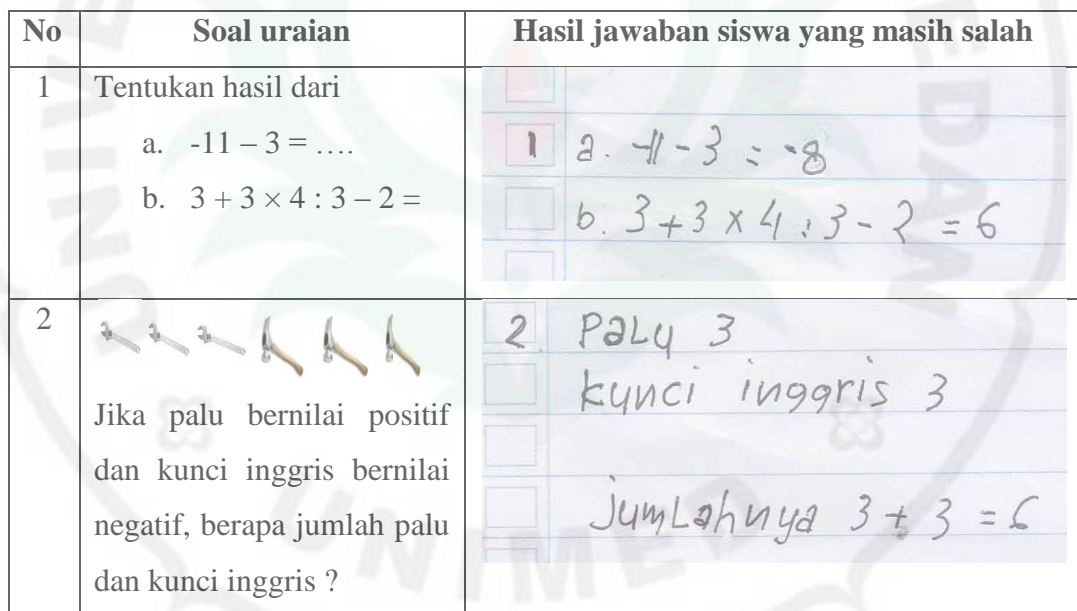 No Soal uraian Hasil jawaban siswa yang masih salah
1 Tentukan hasil dari
a. -11 – 3 = ….
b. 3 + 3 × 4 : 3 – 2 =
1 a. -11 - 3 = -8
b. 3 + 3 x 4 : 3 - 2 = 6
2
Jika palu bernilai positif
dan kunci inggris bernilai
negatif, berapa jumlah palu
dan kunci inggris ?
2. PaLu 3
kunci inggris 3
JumLahnya 3 + 3 = 6
UNIMED